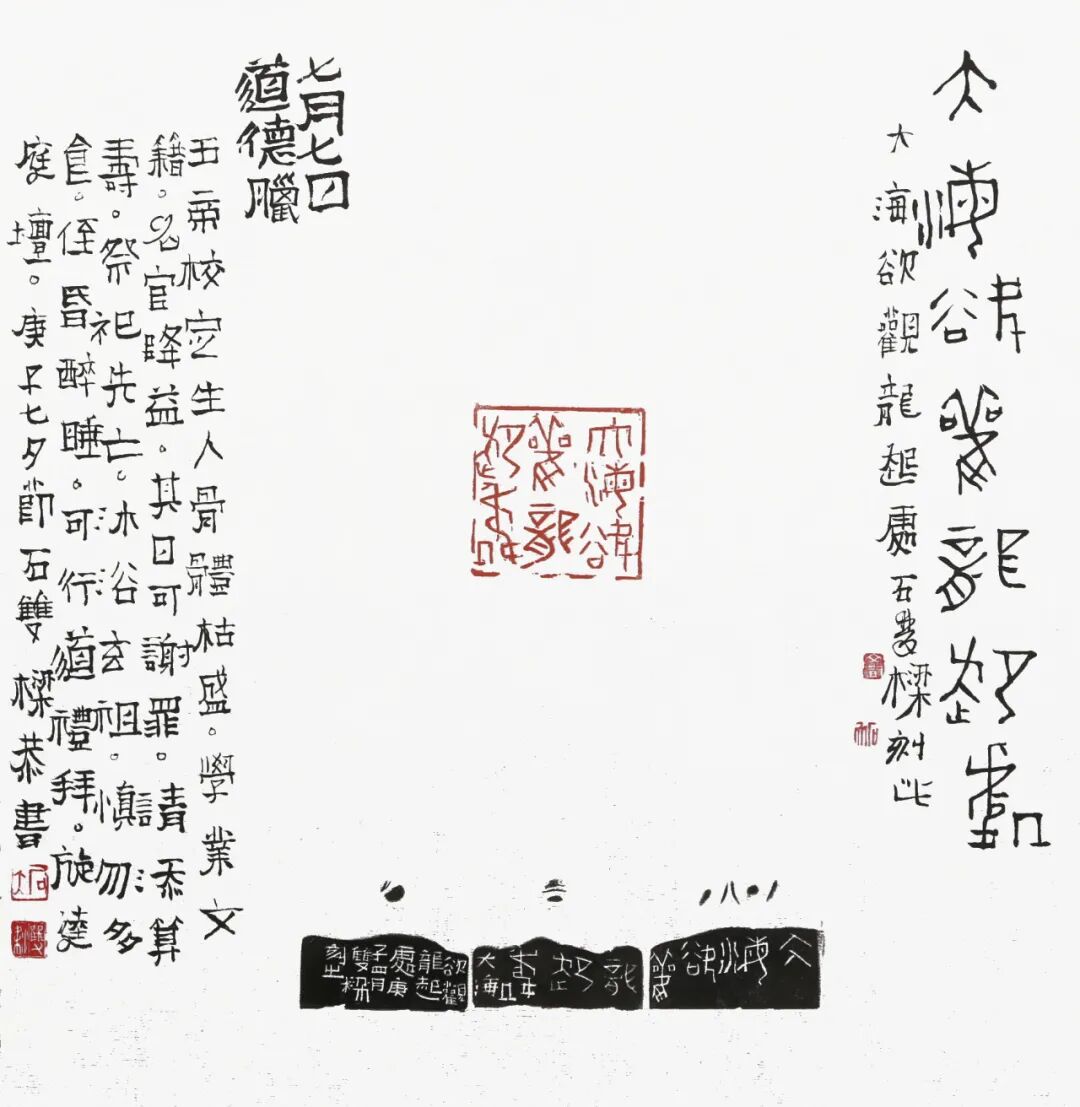 大海欲觀龍起處
大海欲觀龍起處石雙樑刻此
七月七日
道德臘
五帝校定生人骨體枯盛。學業文
籍。名官降益。其日可謝罪。請添算
壽。祭祀先亡。沐浴玄祖。慎勿多
食。侄昏醉睡。可行道禮拜。旋遶
庭壇。庚子七夕節石雙樑恭書
大海欲
觀龍
起處
大海欲觀
龍起處
大海
欲觀
龍起
處庚
子四月
雙樑